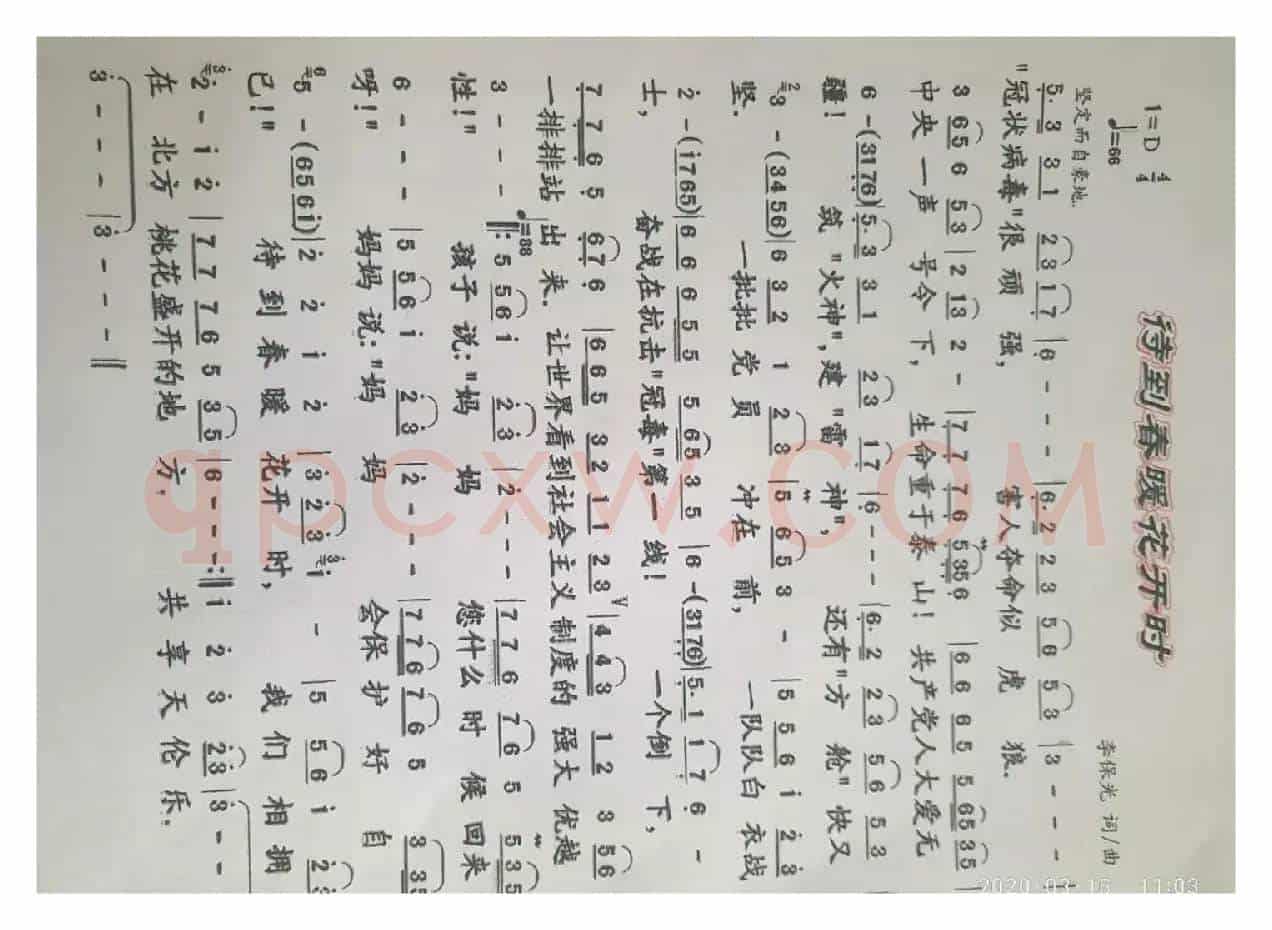 待到春暖花开时
1=D 4/4
♩=66
李保光 词/曲
坚定而自豪地.
5· 3 3 1 2 3 1 7 | 6 - - - | 6· 2 2 3 5 6 5 3 | 3 - - -
"冠状病毒"很顽 强, 害人夺命似 虎 狼.
3 6 5 6 5 3 | 2 1 3 2 - | 7 7 7 6 5 3 5 6 | 6 6 6 5 5 6 5 3 5
中央 一声 号令 下, 生命重于泰 山! 共产党人大爱无
6 - (3 1 7 6) | 5· 3 3 1 2 3 1 7 | 6 - - - | 6· 2 2 3 5 6 5 3
疆! 筑 "火神",建 "雷 神", 还有"方 舱" 快又
3 - (3 4 5 6) | 6 3 2 1 2 3 | 5 6 5 3 - | 5 5 6 i 2 3
坚. 一批批 党 员 冲在 前, 一队队白 衣战
2 - (i 7 6 5) | 6 6 6 5 5 5 6 5 3 5 | 6 - (3 1 7 6) | 5· 1 1 7 6 -
士, 奋战在抗击"冠毒"第一 线! 一个倒 下,
7 7 6 5 6 7 6 | 6 6 5 3 2 1 1 2 3 | 4 4 3 1 2 3 5 6
一排排站 出 来. 让世界看到社会主义制度的 强大 优越
3 - - - ‖: ♩=88 5 5 6 i 2 3 | 2 - - - | 7 7 6 7 6 5 5 3 5
性!" 孩子 说:"妈 妈 您什么 时 候 回来
6 - - - | 5 5 6 i 2 3 | 2 - - - | 7 7 6 7 6 5 3 3 5
呀!" 妈妈 说:"妈 妈 会保 护 好 自
5 - (6 5 6 i) | 2 2 i 2 | 3 2 3 i - | 5 5 6 i 2
己!" 待 到 春 暖 花开 时, 我 们 相 拥
2 - i 2 | 7 7 7 6 5 3 5 | 6 - - - :‖ i 2 3 2 3 | 3 - -
在 北方 桃花盛开的地 方, 共 享 天 伦 乐.
3 - - - | 3 - - - ‖
qpcxw.COM